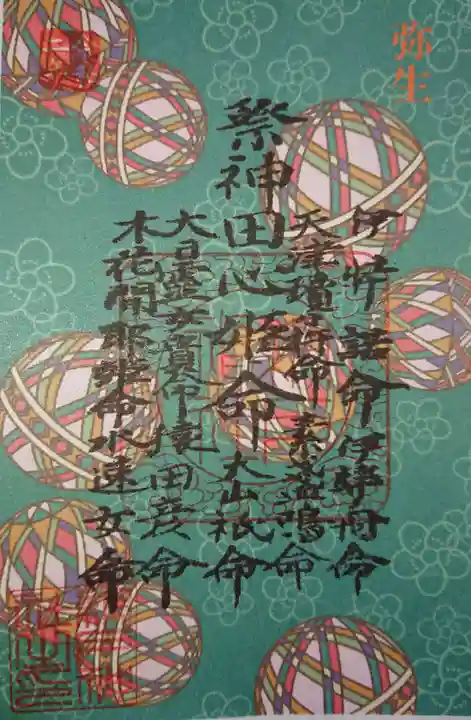 弥生
伊弉諾命 伊弉冊命
素盞嗚命
祭神 田心姫命 大山祇命
大日孁貴命 猿田彦命
木花開耶姫命 水速女命